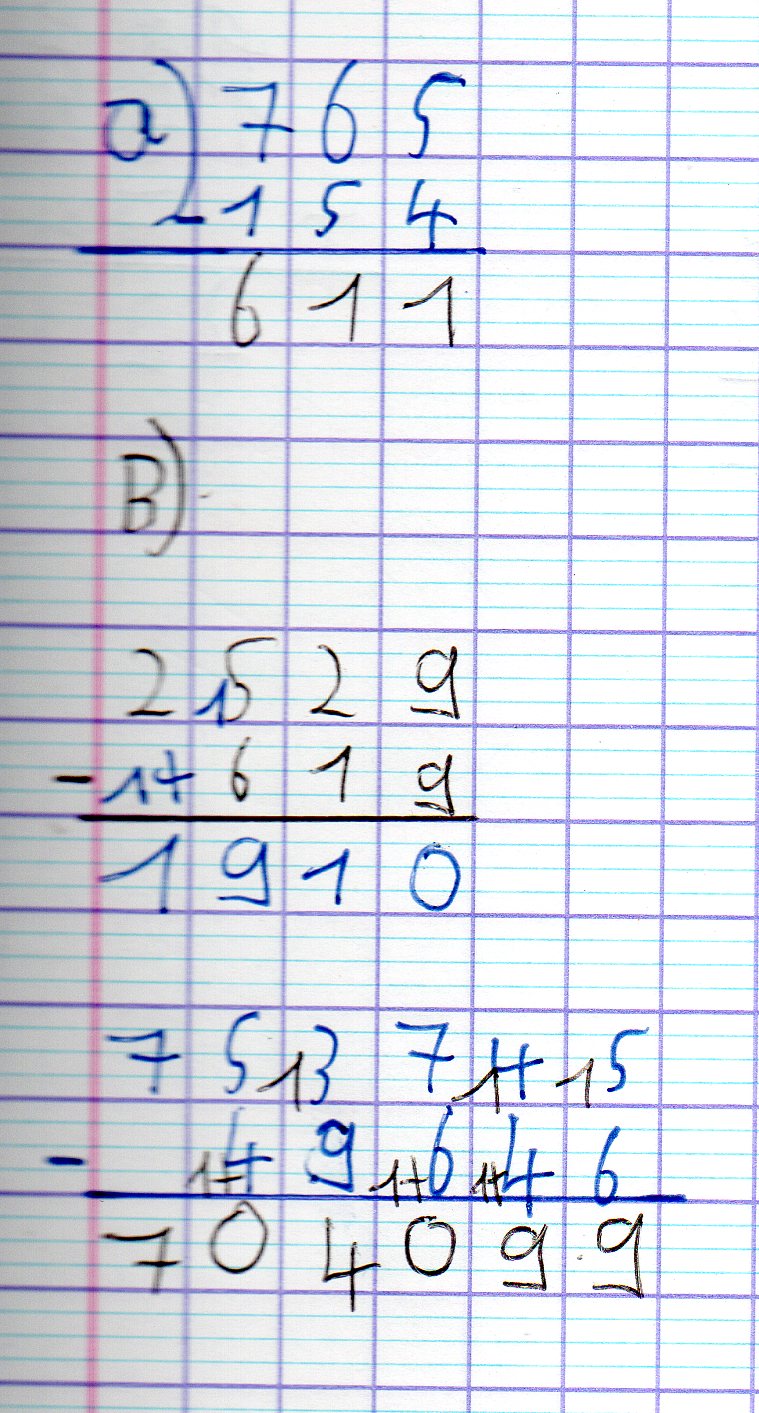 a) 7 6 5
- 1 5 4
6 1 1
B)
2 15 2 9
- 1+ 6 1 9
1 9 1 0
7 5 13 7 14 15
- 1+4 9 1+6 1+4 6
7 0 4 0 9 9